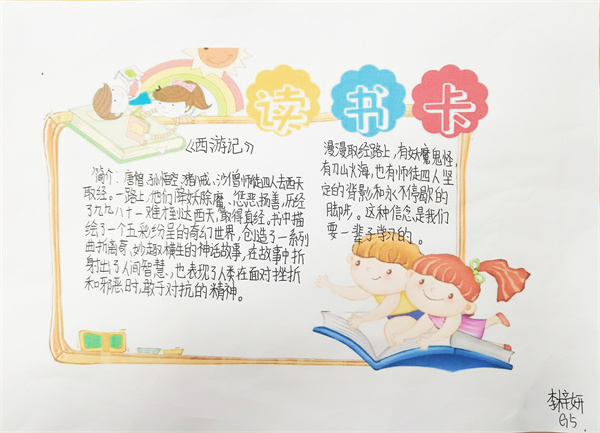 读书卡
《西游记》
简介：唐僧、孙悟空、猪八戒、沙僧师徒四人去西天
取经。一路上，他们降妖除魔、惩恶扬善，历经
了九九八十一难才到达西天，取得真经。书中描
绘了一个五彩纷呈的奇幻世界，创造了一系列
曲折离奇、妙趣横生的神话故事，在故事中折
射出了人间智慧，也表现了人类在面对挫折
和邪恶时，敢于对抗的精神。
漫漫取经路上，有妖魔鬼怪，
有刀山火海，也有师徒四人坚
定的背影和永不停歇的
脚步。这种信念是我们
要一辈子学习的。
李梓妍